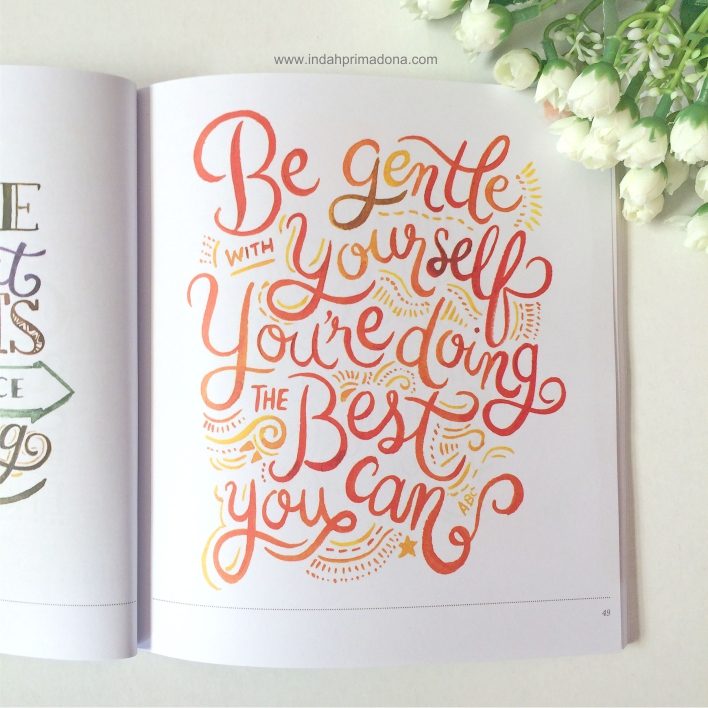 www.indahprimadona.com
Be gentle
WITH yourself
You're doing
THE Best
you can
ABC
49
E
t
TS
CE
g